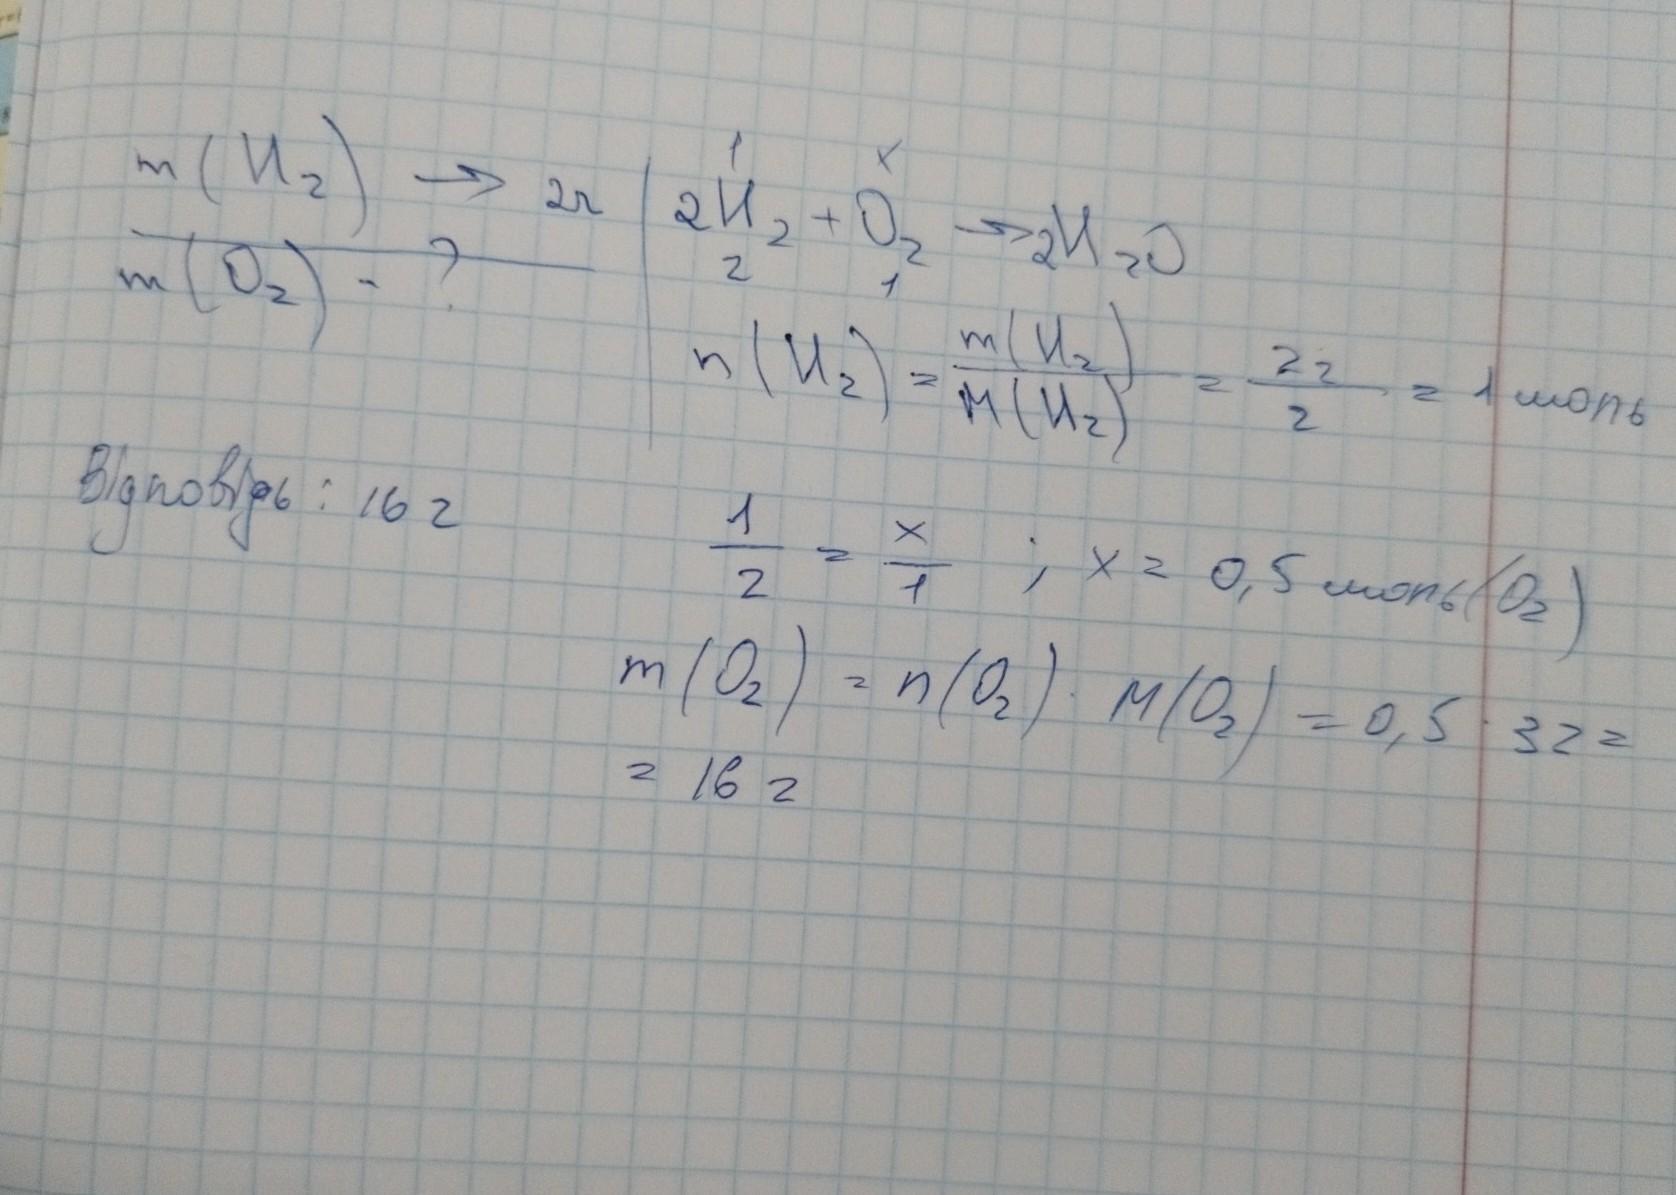 m(H₂) → 2г
m(O₂) - ?
1 x
2H₂ + O₂ → 2H₂O
2 1
n(H₂) = m(H₂)/M(H₂) = 2г/2 = 1 моль
Відповідь: 16 г
1/2 = x/1 ; x = 0,5 моль(O₂)
m(O₂) = n(O₂) · M(O₂) = 0,5 · 32 =
= 16 г